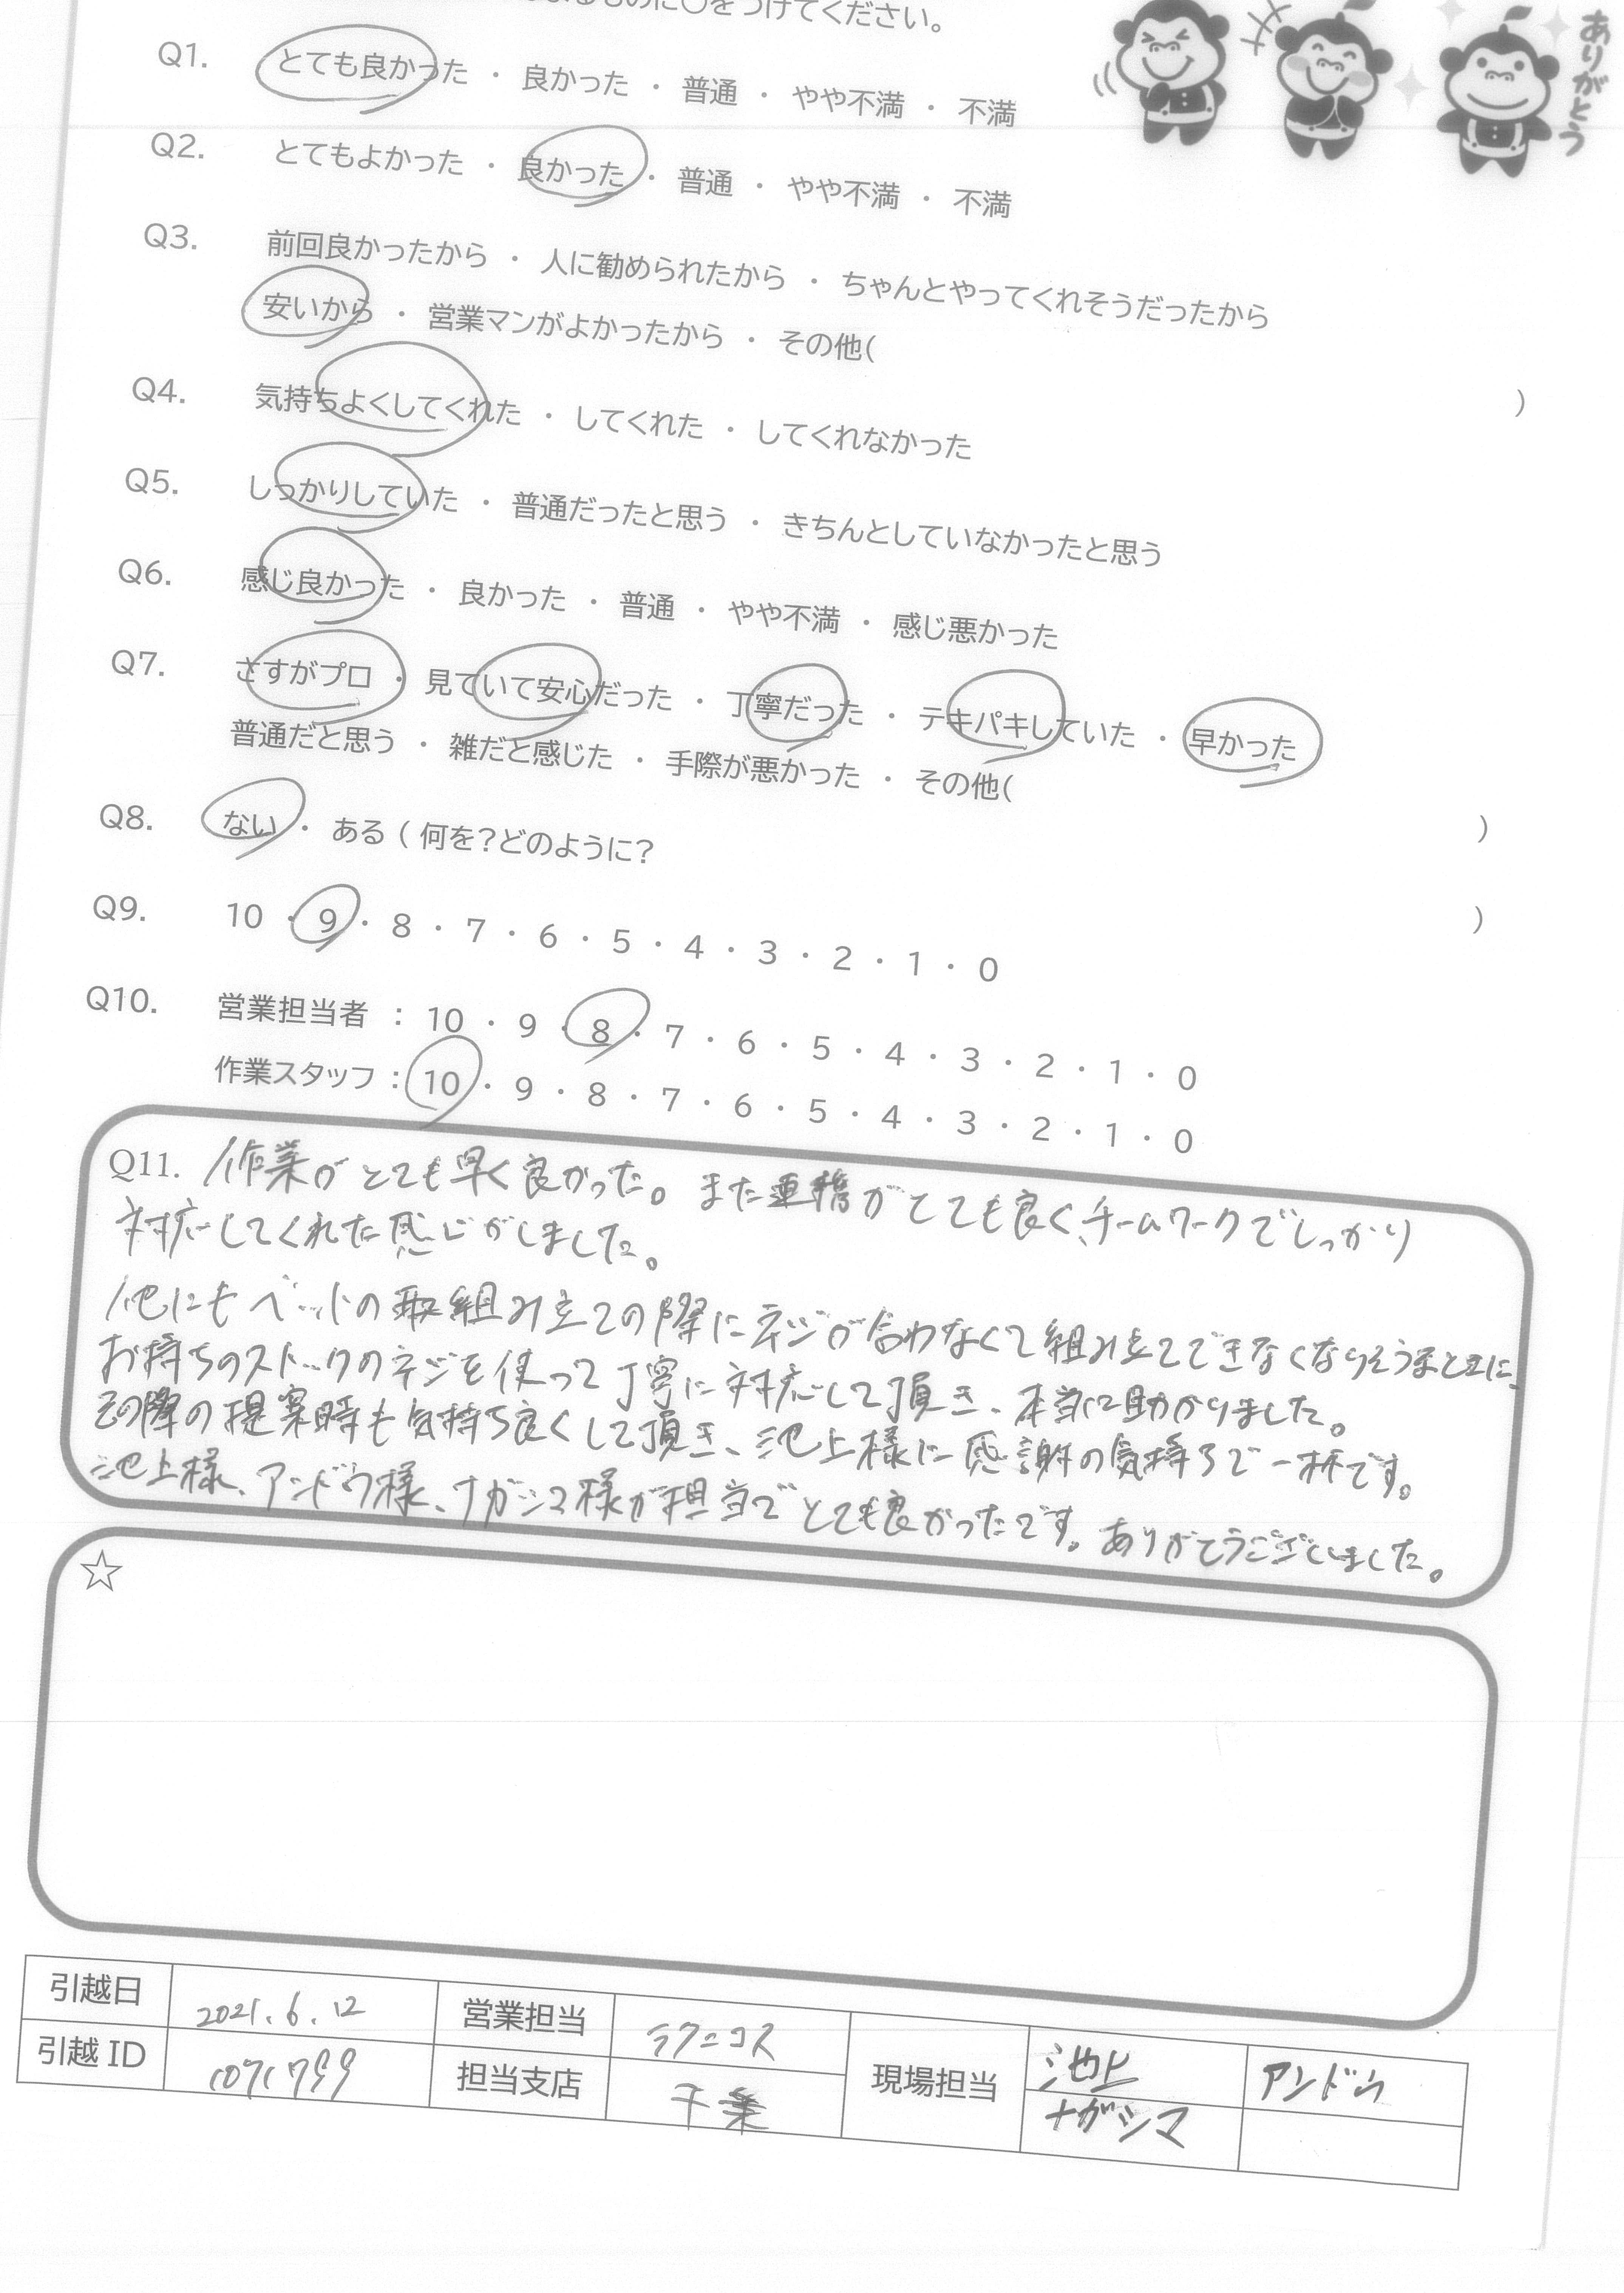 のに○をつけてください。
ありがとう
Q1. とても良かった ・ 良かった ・ 普通 ・ やや不満 ・ 不満
Q2. とてもよかった ・ 良かった ・ 普通 ・ やや不満 ・ 不満
Q3. 前回良かったから ・ 人に勧められたから ・ ちゃんとやってくれそうだったから
安いから ・ 営業マンがよかったから ・ その他( )
Q4. 気持ちよくしてくれた ・ してくれた ・ してくれなかった
Q5. しっかりしていた ・ 普通だったと思う ・ きちんとしていなかったと思う
Q6. 感じ良かった ・ 良かった ・ 普通 ・ やや不満 ・ 感じ悪かった
Q7. さすがプロ ・ 見ていて安心だった ・ 丁寧だった ・ テキパキしていた ・ 早かった
普通だと思う ・ 雑だと感じた ・ 手際が悪かった ・ その他( )
Q8. ない ・ ある ( 何を?どのように? )
Q9. 10 ・ 9 ・ 8 ・ 7 ・ 6 ・ 5 ・ 4 ・ 3 ・ 2 ・ 1 ・ 0
Q10. 営業担当者 : 10 ・ 9 ・ 8 ・ 7 ・ 6 ・ 5 ・ 4 ・ 3 ・ 2 ・ 1 ・ 0
作業スタッフ : 10 ・ 9 ・ 8 ・ 7 ・ 6 ・ 5 ・ 4 ・ 3 ・ 2 ・ 1 ・ 0
Q11. 作業がとても早く良かった。また連携がとても良く、チームワークでしっかり
対応してくれた感じがしました。
他にもベットの組み立ての際にネジが合わなくて組み立てできなくなりそうなときに、
お持ちのストックのネジを使って丁寧に対応して頂き、本当に助かりました。
その際の提案時も気持ち良くして頂き、池上様に感謝の気持ちで一杯です。
池上様、アンドウ様、ナガシマ様が担当でとても良かったです。ありがとうございました。
☆
引越日 2021.6.12 営業担当 現場担当 池上 アンドウ
引越 ID 担当支店 千葉 ナガシマ